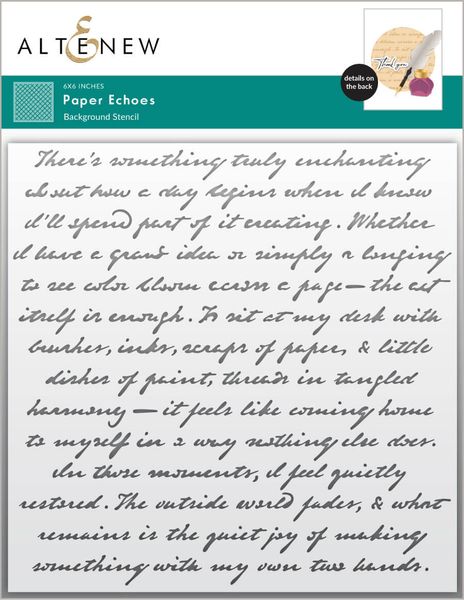 ALTENEW
6X6 INCHES
Paper Echoes
Background Stencil
details on
the back
Thank you
There's something truly enchanting
about how a day begins when I know
I'll spend part of it creating. Whether
I have a grand idea or simply a longing
to see color bloom across a page — the act
itself is enough. To sit at my desk with
brushes, inks, scraps of paper, & little
dishes of paint, threads in tangled
harmony — it feels like coming home
to myself in a way nothing else does.
In those moments, I feel quietly
restored. The outside world fades, & what
remains is the quiet joy of making
something with my own two hands.